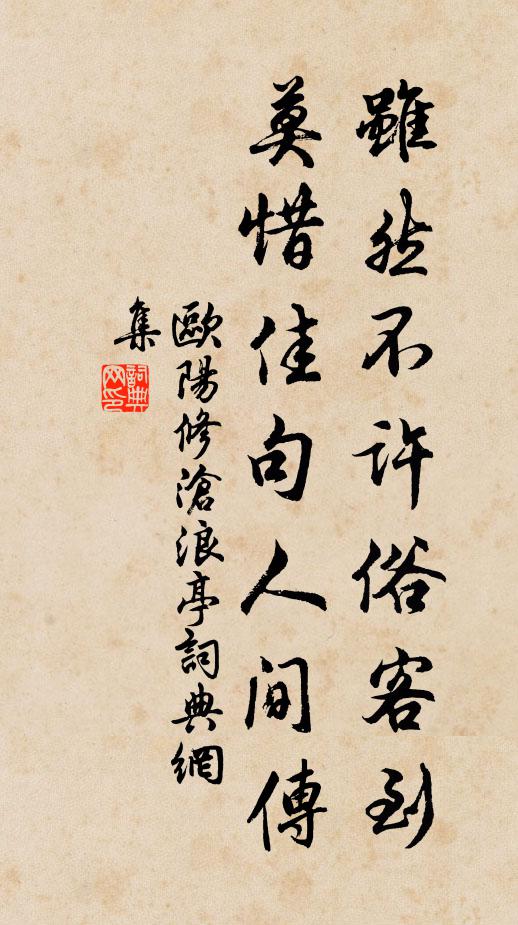 雖然不許俗客到
莫惜佳句人間傳
歐陽修滄浪亭詞典網
集
詞典网印